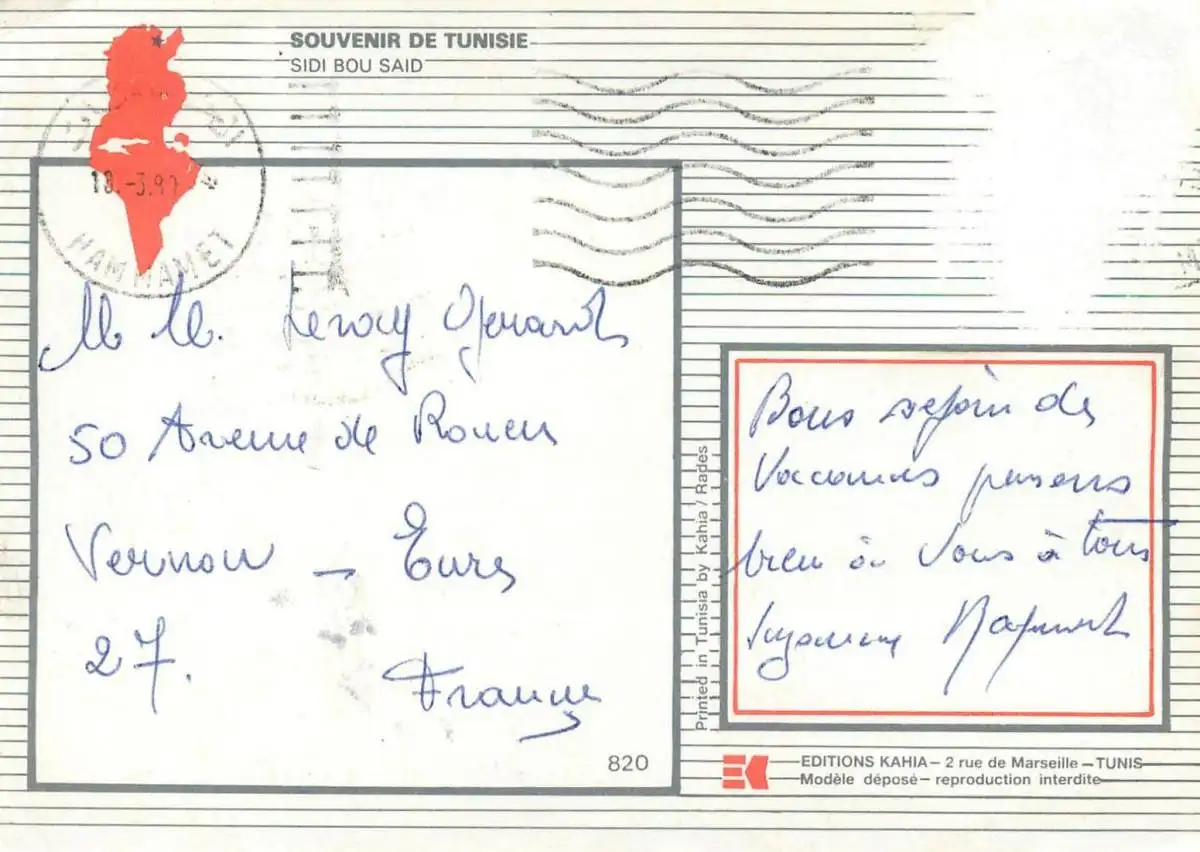 SOUVENIR DE TUNISIE
SIDI BOU SAID
HAMMAMET
M M. Leroy Gérard
50 Avenue de Rouen
Vernon – Eure
27.
France
820
Printed in Tunisia by Kahia / Rades
Bons séjour de
Vacances pensons
bien à Vous à tous
Suzanne
EDITIONS KAHIA – 2 rue de Marseille – TUNIS
Modèle déposé – reproduction interdite